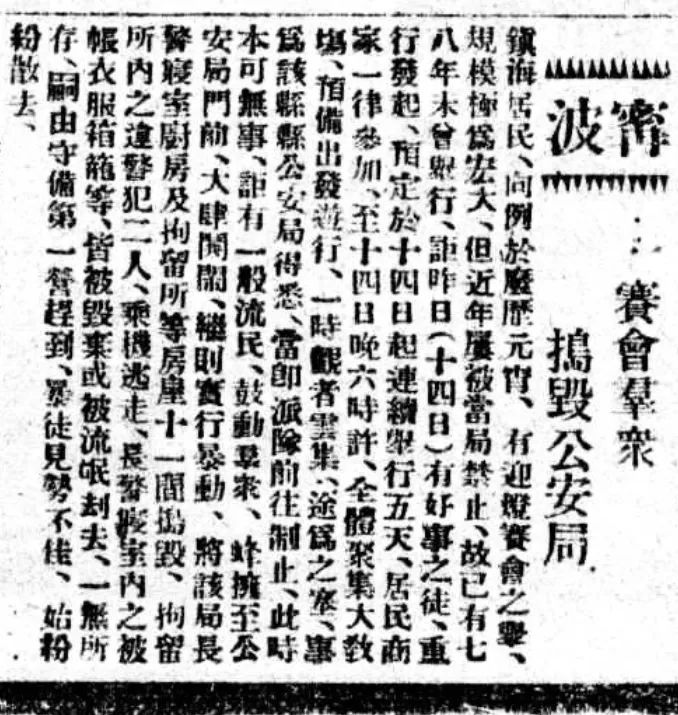 甯波
賽會羣衆
搗毀公安局
鎮海居民、向例於廢歷元宵、有迎燈賽會之舉、
規模極爲宏大、但近年屢被當局禁止、故已有七
八年未曾舉行、詎昨日(十四日)有好事之徒、重
行發起、預定於十四日起連續舉行五天、居民商
家一律參加、至十四日晚六時許、全體聚集大敎
塲、預備出發遊行、一時觀者雲集、途爲之塞、事
爲該縣縣公安局得悉、當卽派隊前往制止、此時
本可無事、詎有一般流民、鼓動羣衆、蜂擁至公
安局門前、大肆鬨鬧、繼則實行暴動、將該局長
警寢室廚房及拘留所等房屋十一間搗毀、拘留
所內之違警犯二人、乘機逃走、長警寢室內之被
帳衣服箱籠等、皆被毀棄或被流氓刦去、一無所
存、嗣由守備第一營趕到、暴徒見勢不佳、始紛
紛散去、